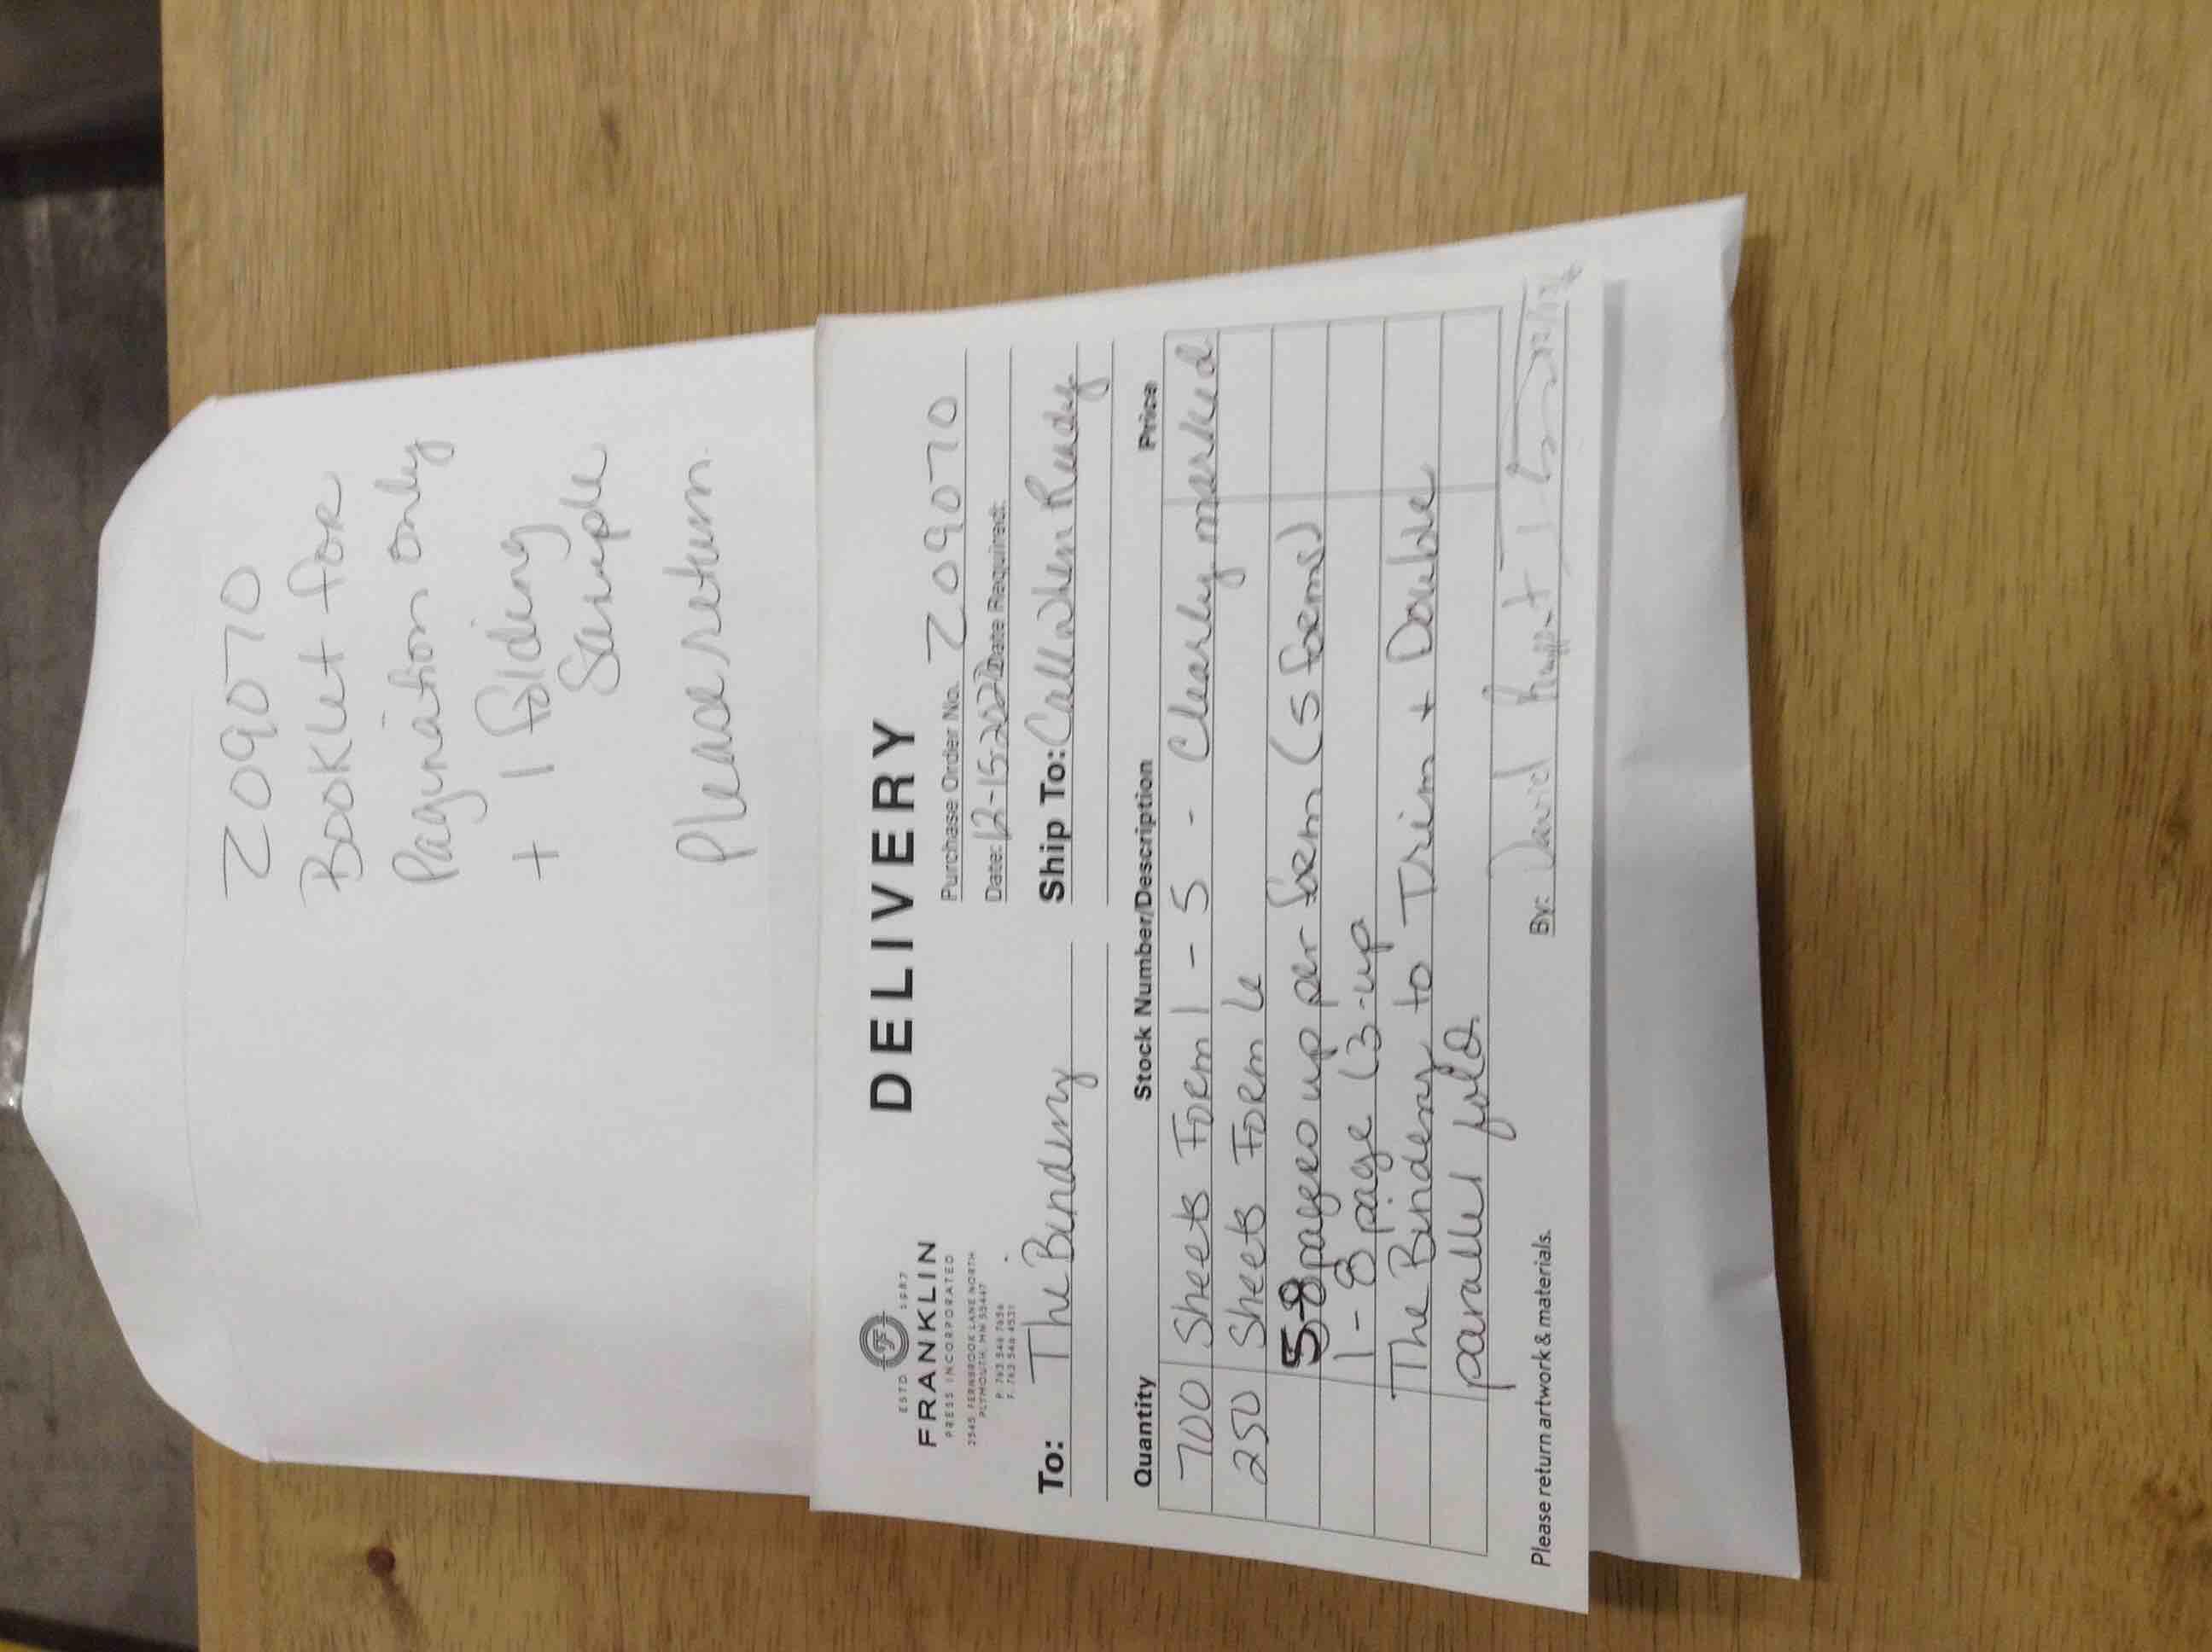 Z09070
Booklet for
Pagination only
+ 1 folding
Sample
Please return
ESTD 1987
FRANKLIN
PRESS INCORPORATED
2545 FERNBROOK LANE NORTH
PLYMOUTH, MN 55447
P. 763 546 7656
F. 763 546 4531
DELIVERY
Purchase Order No. Z09070
Date: 12-15-2022 Date Required:
To: The Bindery
Ship To: Call when Ready
Quantity Stock Number/Description Price
700 Sheets Form 1-5 - Clearly marked
250 Sheets Form 6
5-8 pagers up per form (5 forms)
1-8 page (3-up
The Bindery to Trim + Double
parallel fold.
Please return artwork & materials.
By: David